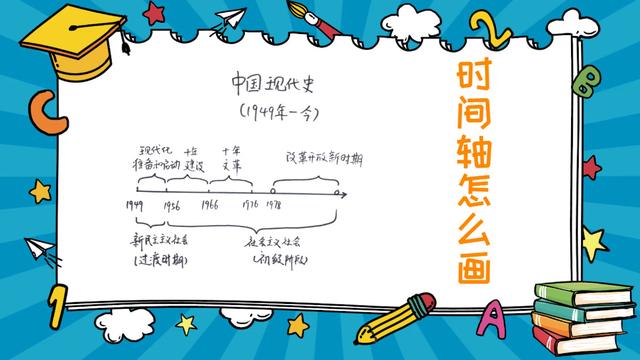 中国现代史
(1949年—今)
时间轴怎么画
现代化
准备和启动
十年
建设
十年
文革
改革开放新时期
1949 1956 1966 1976 1978
新民主主义社会
(过渡时期)
社会主义社会
(初级阶段)
C
2
B
1
A